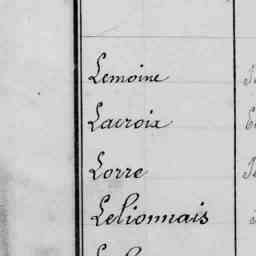 Lemoine
Lacroix
Lorre
Lelionnais